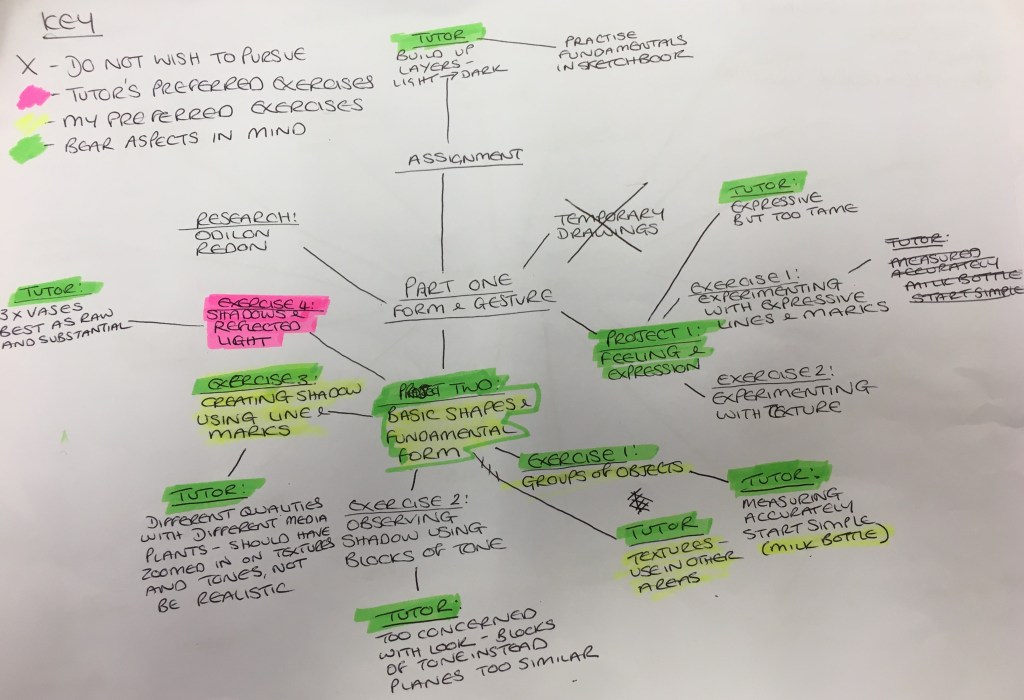 KEY
X - DO NOT WISH TO PURSUE
- TUTOR'S PREFERRED EXERCISES
- MY PREFERRED EXERCISES
- BEAR ASPECTS IN MIND
TUTOR
BUILD UP
LAYERS -
LIGHT → DARK
PRACTISE
FUNDAMENTALS
IN SKETCHBOOK
ASSIGNMENT
RESEARCH!
ODILON
REDON
TEMPORARY
DRAWINGS
TUTOR:
EXPRESSIVE
BUT TOO TAME
PART ONE
FORM & GESTURE
EXERCISE 1:
EXPERIMENTING
WITH EXPRESSIVE
LINES & MARKS
TUTOR:
MEASURED
ACCURATELY
MILK BOTTLE
START SIMPLE
TUTOR:
3 X VASES
BEST AS RAW
AND SUBSTANTIAL
EXERCISE 4:
SHADOWS &
REFLECTED
LIGHT
PROJECT 1:
FEELING &
EXPRESSION
EXERCISE 2:
EXPERIMENTING
WITH TEXTURE
EXERCISE 3:
CREATING SHADOW
USING LINE &
MARKS
TWO:
BASIC SHAPES &
FUNDAMENTAL
FORM
EXERCISE 1:
GROUPS OF OBJECTS
TUTOR:
MEASURING
ACCURATELY
START SIMPLE
(MILK BOTTLE)
TUTOR:
DIFFERENT QUALITIES
WITH DIFFERENT MEDIA
PLANTS - SHOULD HAVE
ZOOMED IN ON TEXTURES
AND TONES, NOT
BE REALISTIC
EXERCISE 2:
OBSERVING
SHADOW USING
BLOCKS OF TONE
TUTOR
TEXTURES -
USE IN OTHER
AREAS
TUTOR:
TOO CONCERNED
WITH LOOK - BLOCKS
OF TONE INSTEAD
PLANES TOO SIMILAR